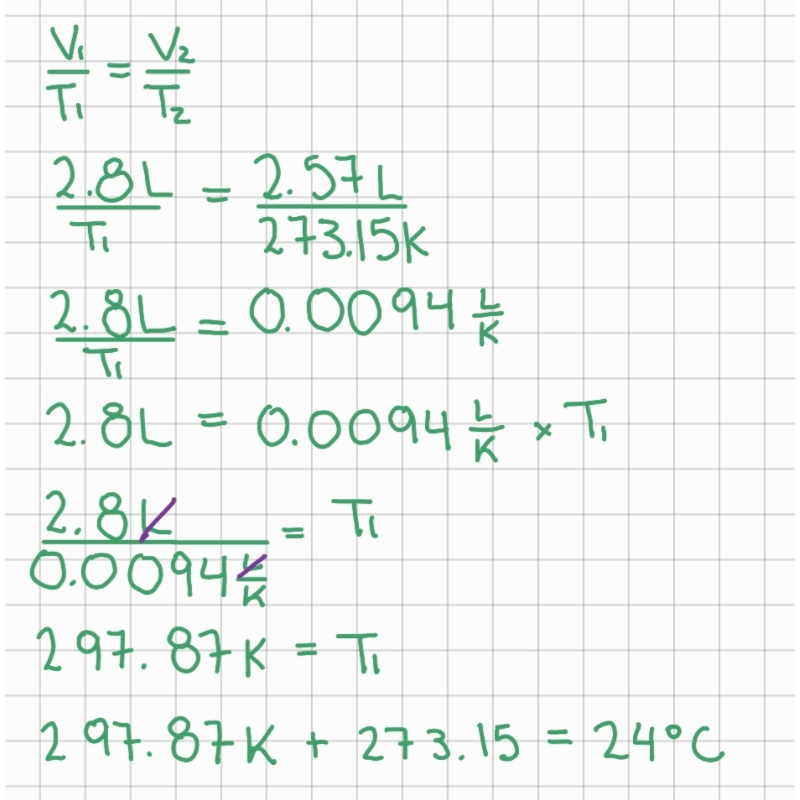 V₁/T₁ = V₂/T₂
2.8L/T₁ = 2.57L/273.15K
2.8L/T₁ = 0.0094 L/K
2.8L = 0.0094 L/K × T₁
2.8L/0.0094 L/K = T₁
297.87K = T₁
297.87K + 273.15 = 24°C